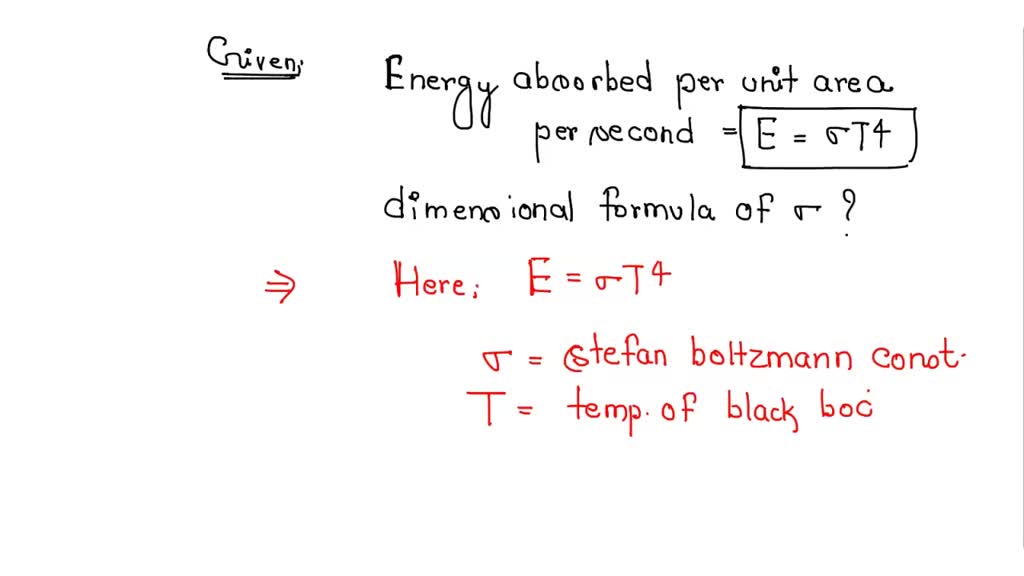 Given;
Energy absorbed per unit area
per second = E = σT4
dimensional formula of σ ?
⇒ Here; E = σT4
σ = stefan boltzmann const.
T = temp. of black